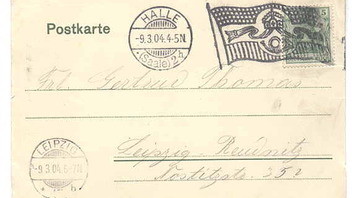 Postkarte
HALLE
-9.3.04.4-5N.
*(Saale)2*
5
Frl. Gertrud Thomas
Leipzig-Reudnitz
LEIPZIG
-9.3.04